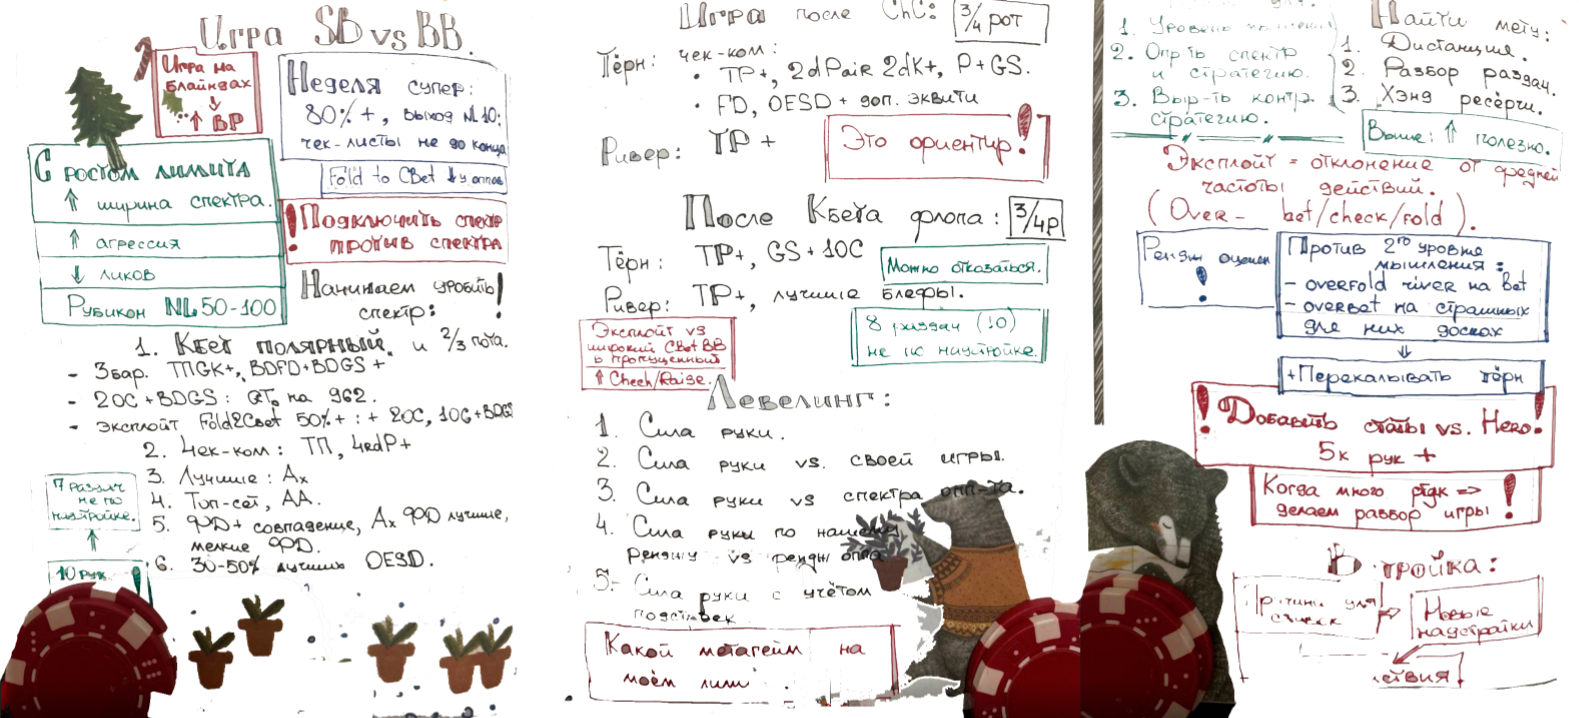 Игра SB vs BB.
Игра на
блайндах
↓
↑ ВР
Неделя супер:
80%+, выход NL10;
чек-листы не до конца
Fold to CBet ↓ у оппов
С ростом лимита
↑ ширина спектра.
↑ агрессия
↓ ликов
Рубикон NL50-100
! Подключить спектр
против спектра
Начинаем угробить!
спектр:
1. Кбет полярный. и 2/3 пота.
- 3бар. ТПGK+, BDFD+BDGS+
- 2ОС+BDGS: QTo на 962.
- эксплойт Fold2Cbet 50%+: + 2ОС, 1ОС+BDGS
2. Чек-ком: ТП, 4redP+
3. Лучшие: Ax
4. Топ-сет, АА.
5. ФД+ совпадение, Ax ФД лучшие,
мелкие ФД.
6. 30-50% лучших OESD.
7 раздач
не по
настройке.
↑
10 рук !
Игра после ChC: 3/4 pот
Тёрн: чек-ком:
• TP+, 2dPair 2dK+, P+GS.
• FD, OESD + доп. эквити
Ривер: TP+
Это ориентир!
После Кбета флопа: 3/4P
Тёрн: TP+, GS+1OC
Можно отказаться.
Ривер: TP+, лучшие блефы.
Эксплойт vs
широкий CBet BB
в пропущенный
↑ Check/Raise.
8 раздач (10)
не по настройке.
Левелинг:
1. Сила руки.
2. Сила руки vs. своей игры.
3. Сила руки vs спектра опп-та.
4. Сила руки по нашему
ренджу vs рендж оппа
5. Сила руки с учётом
Какой метагейм на
моём лими
1. Уровень
2. Опр-ть спектр
и стратегию.
3. Выр-ть контр
стратегию.
Найти мету:
1. Дистанция.
2. Разбор раздач.
3. Хэнд ресёрчи.
Выше: ↑ полезно.
Эксплойт = отклонение от средней
частоты действий.
(Over- bet/check/fold).
Рендж оценен
!
Против 2го уровня
мышления:
- overfold river на bet
- overbet на страшных
для них досках
↓
+Перекалывать тёрн
! Добавить статы vs. Hero!
5к рук +
Когда много рук =>
делаем разбор игры !
тройка:
Новые
надстройки
ствия